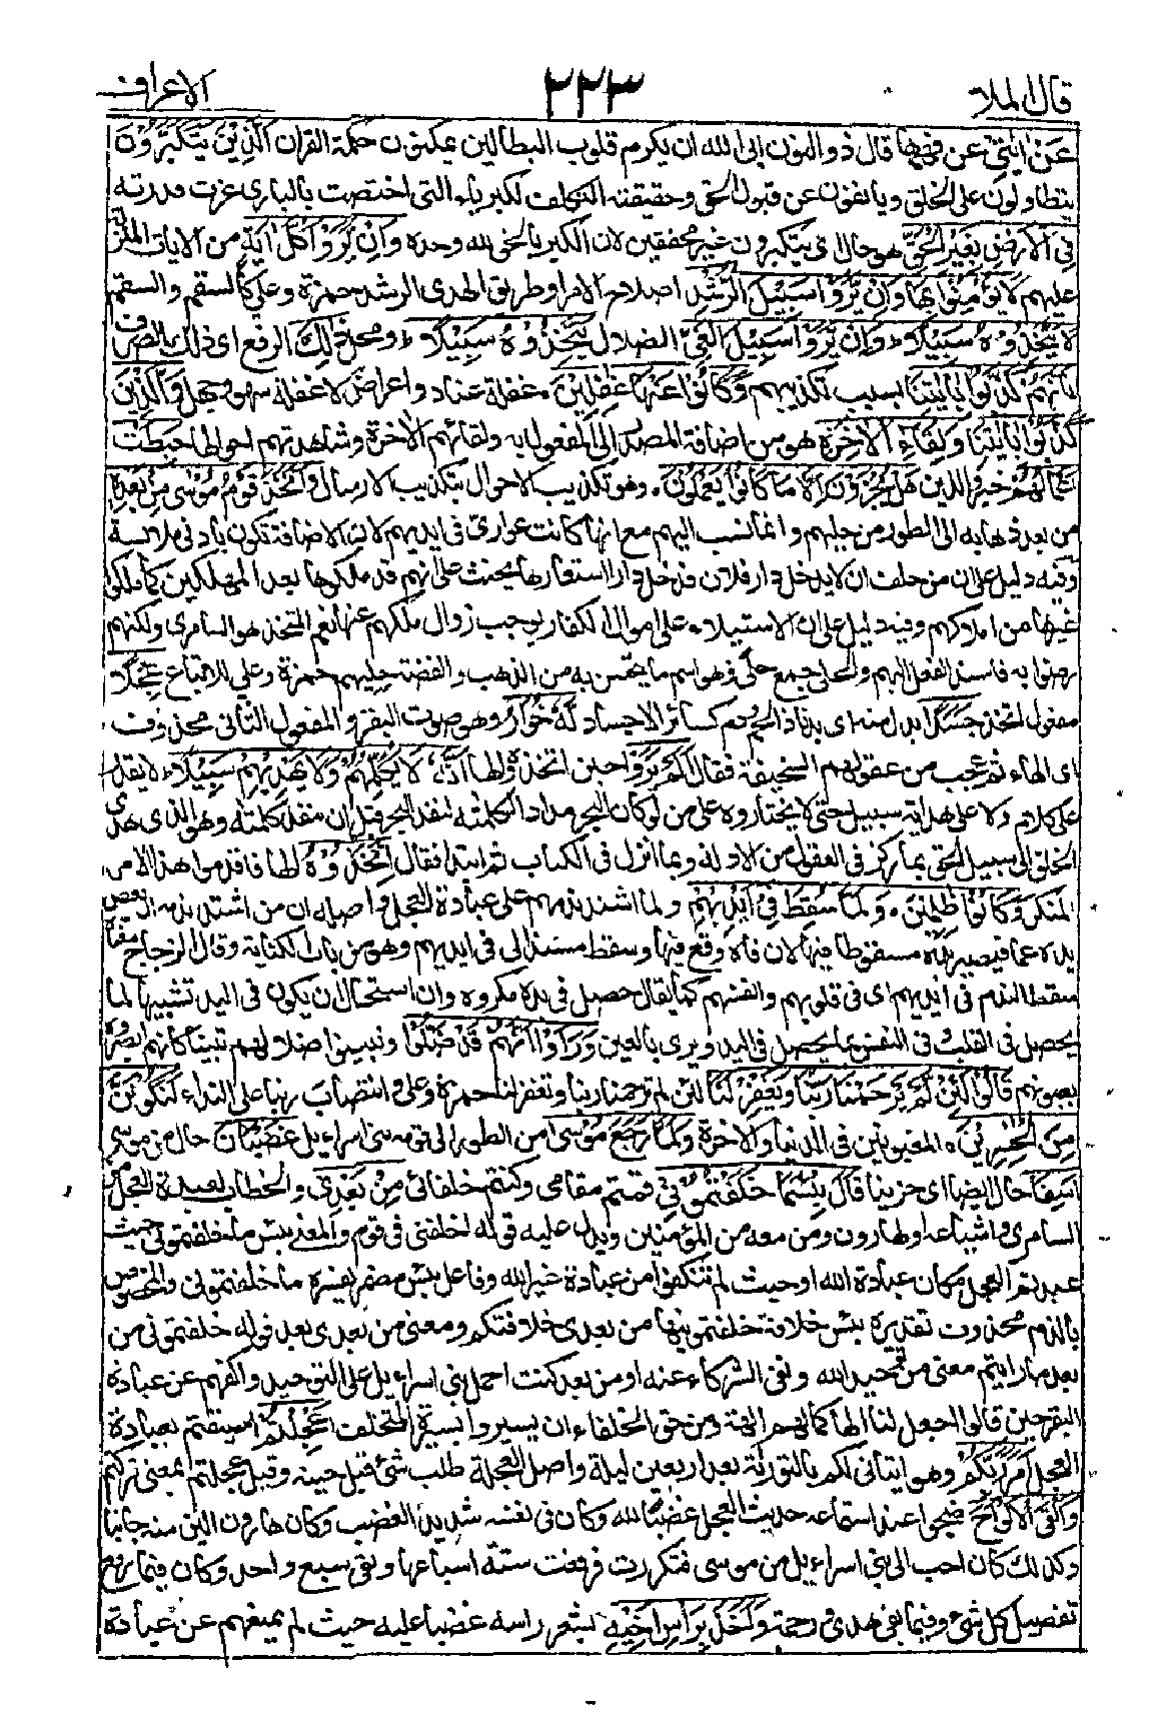 قال الملا
٢٢٣
الاعراف
عَنْ اٰيٰتِيَ عن فهمها قال ذو النون ابى الله ان يكرم قلوب البطالين بمكنون حكمة القران الَّذِيْنَ يَتَكَبَّرُوْنَ
يتطاولون على الخلق ويانفون عن قبول الحق وحقيقته التكلف لكبرياء التى اختصت بالبارى عزت قدرته
فِى الْاَرْضِ بِغَيْرِ الْحَقِّ هو حال اى يتكبرون غير محقين لان الكبر بالحق لله وحده وَاِنْ يَّرَوْا كُلَّ اٰيَةٍ من الايات المنزلة
عليهم لَّا يُؤْمِنُوْا بِهَا وَاِنْ يَّرَوْا سَبِيْلَ الرُّشْدِ اصلاح الامر او طريق الهدى الرشد حمزة وعلى كالسقم والسقم
لَا يَتَّخِذُوْهُ سَبِيْلًا وَاِنْ يَّرَوْا سَبِيْلَ الْغَيِّ الضلال يَتَّخِذُوْهُ سَبِيْلًا ومحل ذٰلِكَ الرفع اى ذلك الصرف
بِاَنَّهُمْ كَذَّبُوْا بِاٰيٰتِنَا بسبب تكذيبهم وَكَانُوْا عَنْهَا غٰفِلِيْنَ غفلة عناد واعراض لا غفلة سهو وجهل وَالَّذِيْنَ
كَذَّبُوْا بِاٰيٰتِنَا وَلِقَآءِ الْاٰخِرَةِ هو من اضافة المصدر الى المفعول به ولقائهم الاخرة وشاهدتهم احوالها حَبِطَتْ
اَعْمَالُهُمْ خبر والذين هَلْ يُجْزَوْنَ اِلَّا مَا كَانُوْا يَعْمَلُوْنَ وهو تكذيب الاحوال بتكذيب الارسال وَاتَّخَذَ قَوْمُ مُوْسٰى مِنْ بَعْدِهٖ
من بعد ذهابه الى الطور من حليهم وانما نسب اليهم مع انها كانت عوارى فى ايديهم لان الاضافة تكون بادنى ملابسة
وفيه دليل على ان من حلف ان لا يدخل دار فلان فدخل دارا استعارها يحنث على انهم قد ملكوها بعد المهلكين كما ملكوا
غيرها من املاكهم وفيه دليل على ان الاستيلاء على اموال الكفار يوجب زوال ملكهم عنها نعم المتخذ هو السامرى ولكنهم
رضوا به فاسند الفعل اليهم والحلى جمع حلى وهو اسم ما يتحسن به من الذهب والفضة حليهم حمزة وعلى للاتباع عِجْلًا
مفعول اتخذ جَسَدًا بدل منه اى بدنا ذا لحم ودم كسائر الاجساد لَّهٗ خُوَارٌ وهو صوت البقر والمفعول الثانى محذوف
اى الهاء ثم عجب من عقولهم السخيفة فقال اَلَمْ يَرَوْا حين اتخذوه الها اَنَّهٗ لَا يُكَلِّمُهُمْ وَلَا يَهْدِيْهِمْ سَبِيْلًا لا يقدر
على كلام ولا على هداية سبيل حتى لا يختاروه على من لو كان البحر مدادا لكلمته لنفد البحر قبل ان تنفد كلمته وهو الذى هدى
الخلق الى سبيل الحق بما ركز فى العقول من الادلة وبما انزل فى الكتاب ثم ابتدا فقال اِتَّخَذُوْهُ الها فاقدموا هذا الامر
المنكر وَكَانُوْا ظٰلِمِيْنَ وَلَمَّا سُقِطَ فِيْ اَيْدِيْهِمْ ولما اشتد ندمهم على عبادة العجل واصله ان من اشتد ندمه ان يعض
يده غما فيصير يده مسقوطا فيها لان فاه وقع فيها وسقط مسند الى فى ايديهم وهو من باب الكناية وقال الزجاج معناه
سقط الندم فى ايديهم اى فى قلوبهم وانفسهم كما يقال حصل فى يده مكروه وان استحال ان يكون فى اليد تشبيها لما
يحصل فى القلب فى النفس بما يحصل فى اليد ويرى بالعين وَرَاَوْا اَنَّهُمْ قَدْ ضَلُّوْا وتبينوا ضلالهم تبينا كانهم ابصروه
بعيونهم قَالُوْا لَئِنْ لَّمْ يَرْحَمْنَا رَبُّنَا وَيَغْفِرْ لَنَا لئن لم ترحمنا ربنا وتغفر لنا حمزة وعلى وانتصاب ربنا على النداء لَنَكُوْنَنَّ
مِنَ الْخٰسِرِيْنَ المغبونين فى الدنيا والاخرة وَلَمَّا رَجَعَ مُوْسٰى من الطور اِلٰى قومه بنى اسراءيل غَضْبَانَ حال من موسى
اَسِفًا حال ايضا اى حزينا قَالَ بِئْسَمَا خَلَفْتُمُوْنِيْ قمتم مقامى وكنتم خلفائى مِنْ بَعْدِيْ والخطاب لعبدة العجل من
السامرى واشياعه او لهارون ومن معه من المؤمنين ويدل عليه قوله اخلفنى فى قومى والمعنى بئس ما خلفتمونى حيث
عبدتم العجل مكان عبادة الله او حيث لم تكفوا من عبادة غير الله وفاعل بئس مضمر يفسره ما خلفتمونى والمخصوص
بالذم محذوف تقديره بئس خلافة خلفتمونيها من بعدى خلافتكم ومعنى من بعدى بعد قوله خلفتمونى من
بعد ما رايتم معنى من توحيد الله ونفى الشركاء عنه او من بعد كنت احمل بنى اسراءيل على التوحيد واكفهم عن عبادة
البقر حين قالوا اجعل لنا الها كما لهم الهة ومن حق الخلفاء ان يسيروا بسيرة المتخلف اَعَجِلْتُمْ اسبقتم بعبادة
العجل اَمْرَ رَبِّكُمْ وهو اتيانى لكم بالتورٰىة بعد اربعين ليلة واصل العجلة طلب شئ قبل حينه وقيل عجلتم بمعنى تركتم
وَاَلْقَى الْاَلْوَاحَ ضجرا عند استماعه حديث العجل غضبا لله وكان فى نفسه شديد الغضب وكان هارون الين منه جانبا
وكذلك كان احب الى بنى اسراءيل من موسى فتكسرت فرفعت ستة اسباعها وبقى سبع واحد وكان فيما رفع
تفصيل كل شئ وفيما بقى هدى ورحمة وَاَخَذَ بِرَاْسِ اَخِيْهِ بشعر راسه غضبا عليه حيث لم يمنعهم عن عبادة